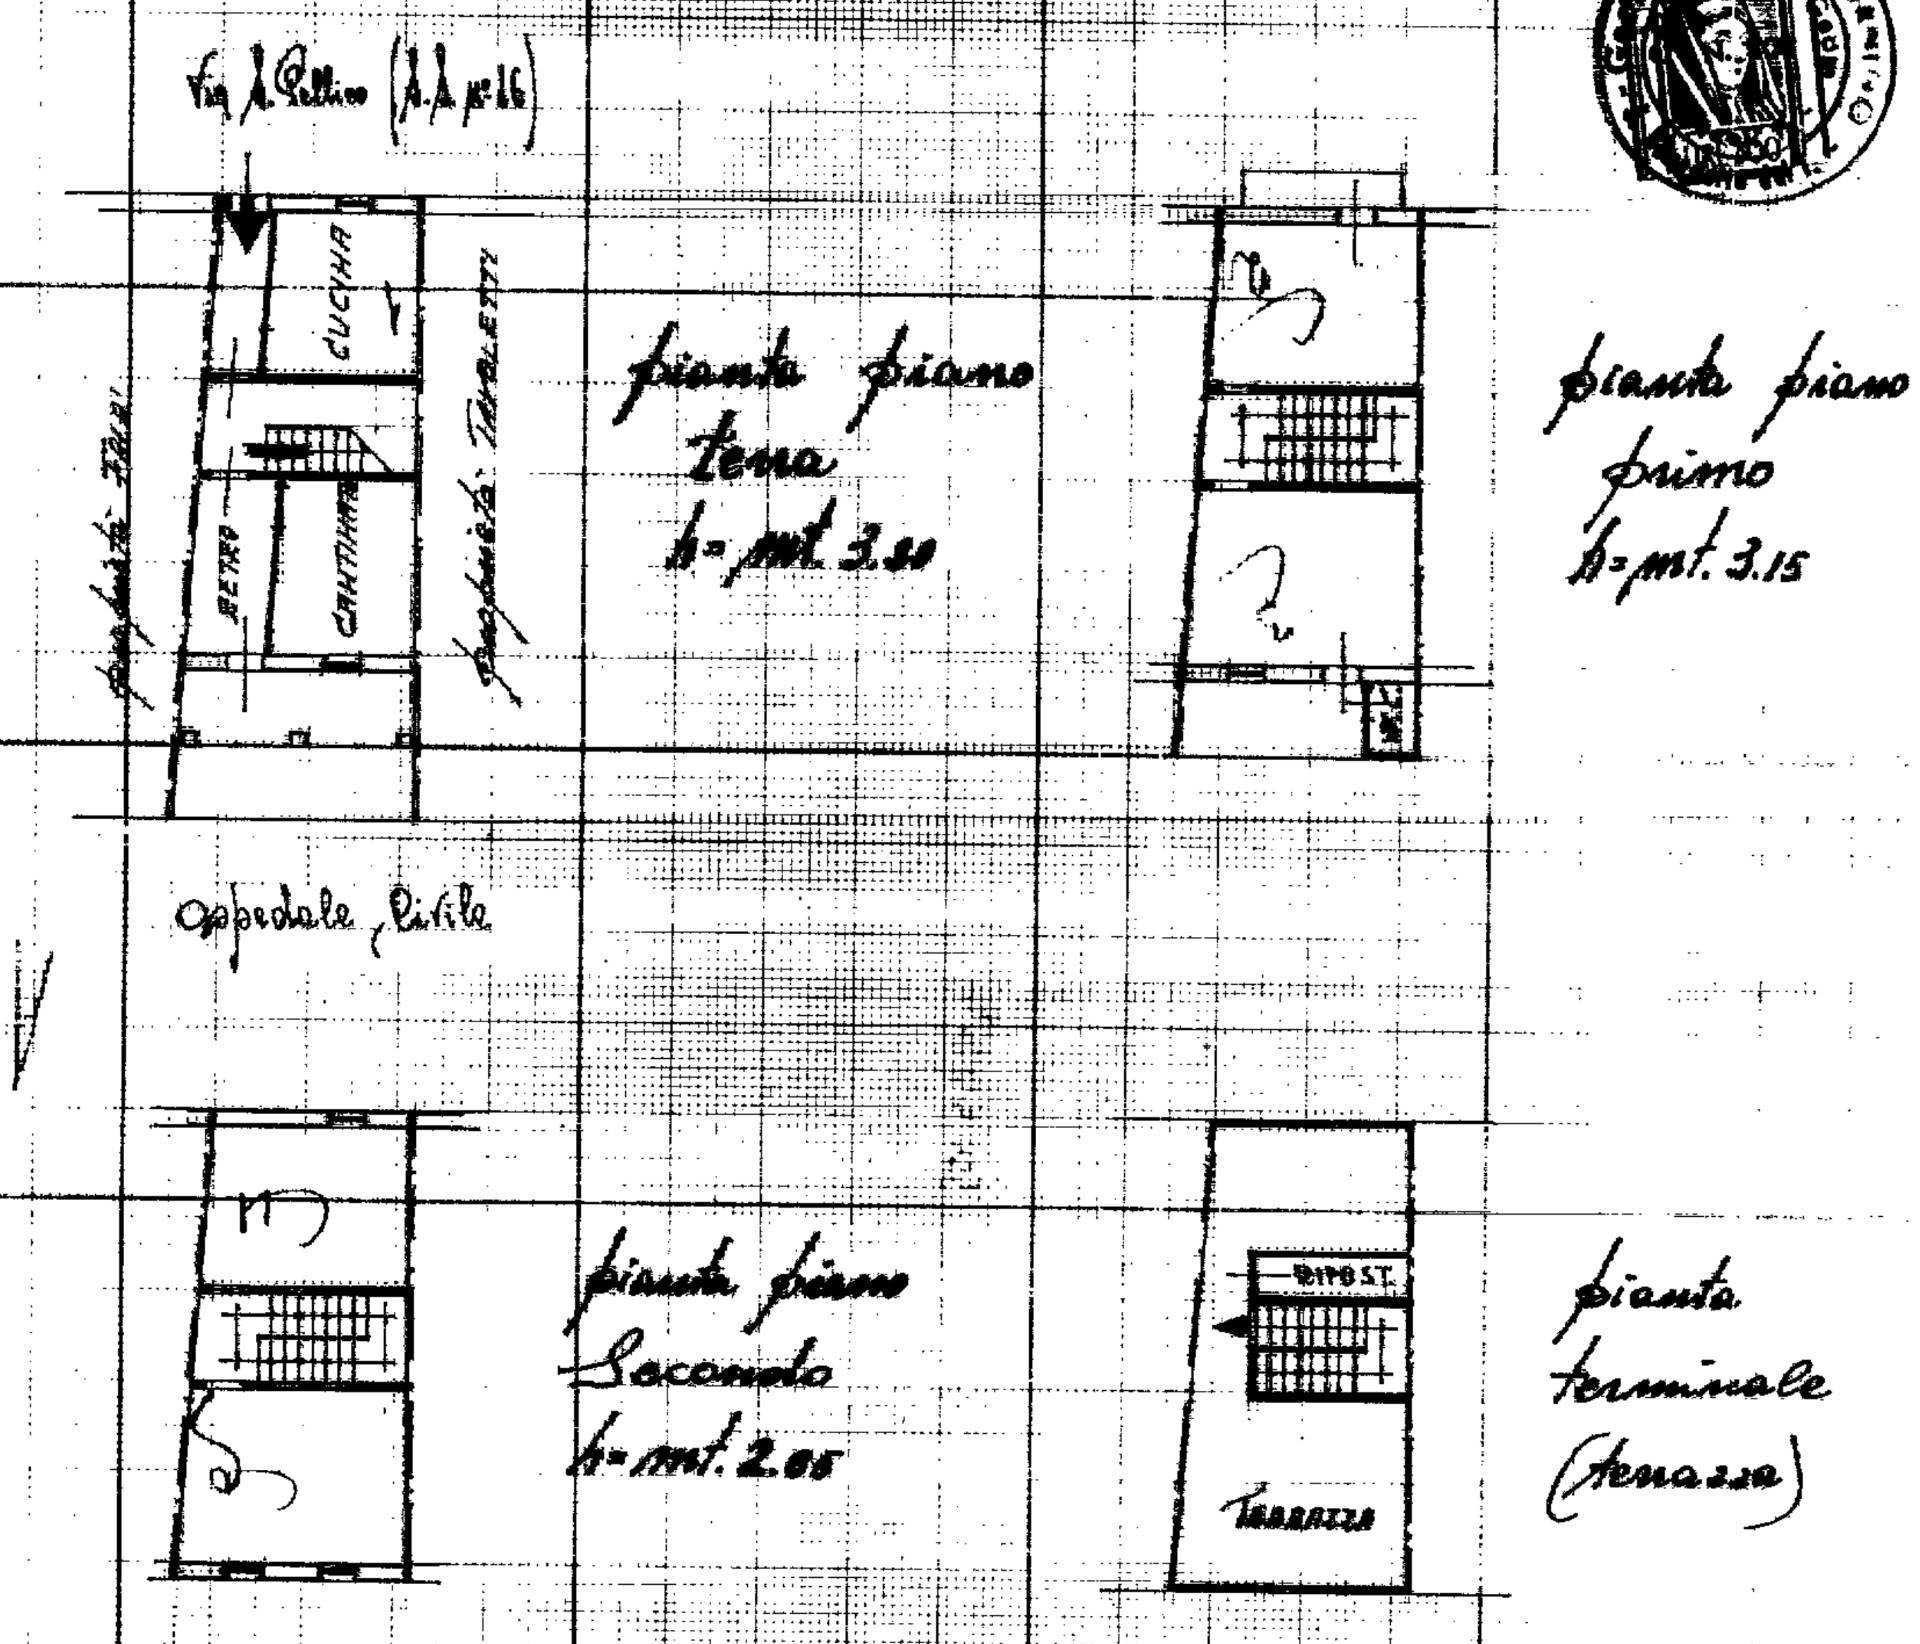 Via S. Pellico (S.S. Nº 16)
CUCINA
proprietà
proprietà TAVOLETTI
RETRO
CANTINA
pianta piano
terra
h= mt. 3.30
pianta piano
primo
h= mt. 3.15
Ospedale Civile
pianta piano
Secondo
h= mt. 2.85
RIPOST.
TERRAZZA
pianta
terminale
(terrazza)